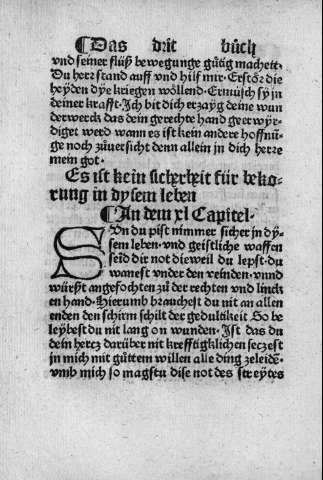 ¶Das drit bůch
vnd seiner flüß bewegunge gůtig machett.
Du herr stand auff vnd hilf mir. Erstör die
heyden dye kriegen wöllend. Ermüsch sy in
deiner krafft. Ich bit dich erzayg deine wun
derwerck das dein gerechte hand geerwyr/
diget werd wann es ist kein andere hoffnū/
ge noch zůuersicht denn allein in dich herre
mein got.
Es ist kein sicherheit für beko/
rung in dysem leben
¶In dem xl Capitel.
SOn du pist nimmer sicher in dy/
sem leben. vnd geistliche waffen
seind dir not die weil du lepst. du
wanest vnder den veinden. vnnd
würst angefochten zů der rechten vnd linck
en hand. Hierumb brauchest du nit an allen
enden den schirm schilt der gedultikeit So be
leybest du nit lang on wunden. Ist das du
dein hertz darüber nit krefftigklichen seczest
in mich mit gůttem willen alle ding zeleidē.
vmb mich so magstu dise not des streytes